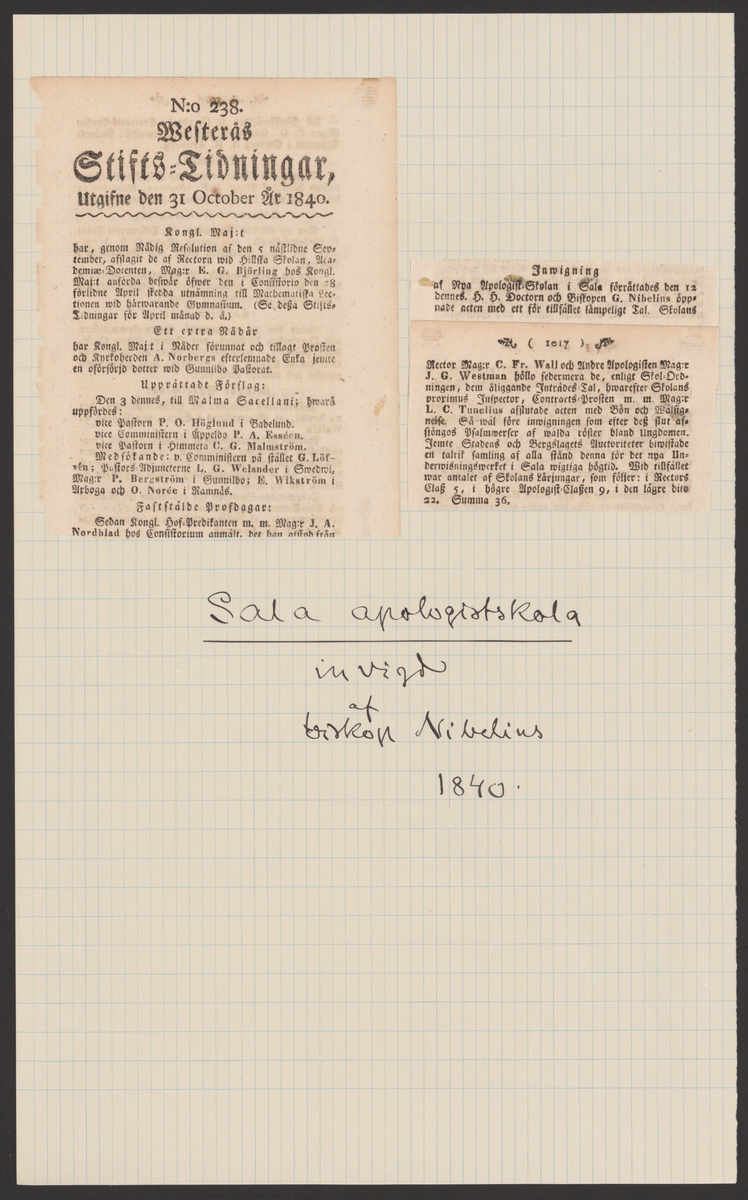 N:o 238.
Westerås
Stifts-Tidningar,
Utgifne den 31 October År 1840.
Kongl. Maj:t
har, genom Nådig Resolution af den 5 nästlidne Sep-
tember, afslagit de af Rectorn wid Hillska Skolan, Aca-
demiæ-Docenten, Mag:r E. G. Björling hos Kongl.
Maj:t anförda beswär öfwer den i Consistorio den 28
förlidne April skedda utnämning till Mathematiska Lec-
tionen wid härwarande Gymnasium. (Se deßa Stifts-
Tidningar för April månad d. å.)
Ett extra Nådår
har Kongl. Maj:t i Nåder förunnat och tillagt Prosten
och Kyrkoherden A. Norbergs efterlemnade Enka jemte
en oförsörjd dotter wid Gunnilbo Pastorat.
Upprättadt Förslag:
Den 3 dennes, till Malma Sacellani; hwarå
uppfördes:
vice Pastorn P. O. Höglund i Badelund.
vice Comministern i Äppelbo P. A. Esséen.
vice Pastorn i Himmeta C. G. Malmström.
Medsökande: v. Comministern på stället G. Löf-
vén; Pastors-Adjuncterne L. G. Welander i Swedwi,
Mag:r P. Bergström i Gunnilbo; E. Wikström i
Arboga och O. Norée i Ramnäs.
Fastställde Profdagar:
Sedan Kongl. Hof-Predikanten m. m. Mag:r J. A.
Nordblad hos Consistorium anmält, det han afstod från
Inwigning
af Nya Apologist-Skolan i Sala förrättades den 12
dennes. H. H. Doctorn och Biskopen G. Nibelius öpp-
nade acten med ett för tillfället lämpeligt Tal. Skolans
( 1017 )
Rector Mag:r C. Fr. Wall och Andre Apologisten Mag:r
J. G. Westman höllo sedermera de, enligt Skol-Ord-
ningen, dem åliggande Inträdes-Tal, hwarefter Skolans
proximus Inspector, Contracts-Prosten m. m. Mag:r
L. C. Tunelius afslutade acten med Bön och Wälsig-
nelse. Så wäl före inwigningen som efter deß slut af-
sjöngos Psalmwerser af walda röster bland Ungdomen.
Jemte Stadens och Bergslagets Auctoriteter biwistade
en talrik samling af alla stånd denna för det nya Un-
derwisningswerket i Sala wigtiga högtid. Wid tillfället
war antalet af Skolans Lärjungar, som följer: i Rectors
Claß 5, i högre Apologist-Claßen 9, i den lägre dito
22. Summa 36.
Sala apologistskola
invigd
af
biskop Nibelius
1840.